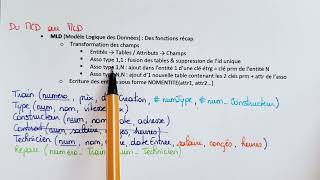 Du MCD au MLD
• MLD (Modèle Logique des Données) : Des fonctions récap
○ Transformation des champs
▪ Entités → Tables / Attributs → Champs
▪ Asso type 1,1 : fusion des tables & suppression de l'id unique
▪ Asso type 1,N : ajout dans l'entité 1 d'une clé étrg = clé prm de l'entité N
▪ Asso type N,N : ajout d'1 nouvelle table contenant les 2 clés prm + attr de l'asso
○ Ecriture des entités sous forme NOMENTITE(attr1, attr2...)
Train (numero, prix, dateCreation, # numType, # num_Constructeur)
Type (num, nom, vitesse)
Constructeur (num, nom, adresse)
Contrat (num, salaire, congés, heures)
Technicien (num, nom, date Entree, salaire, congés, heures)
Répare (numero_Train, num_Technicien)